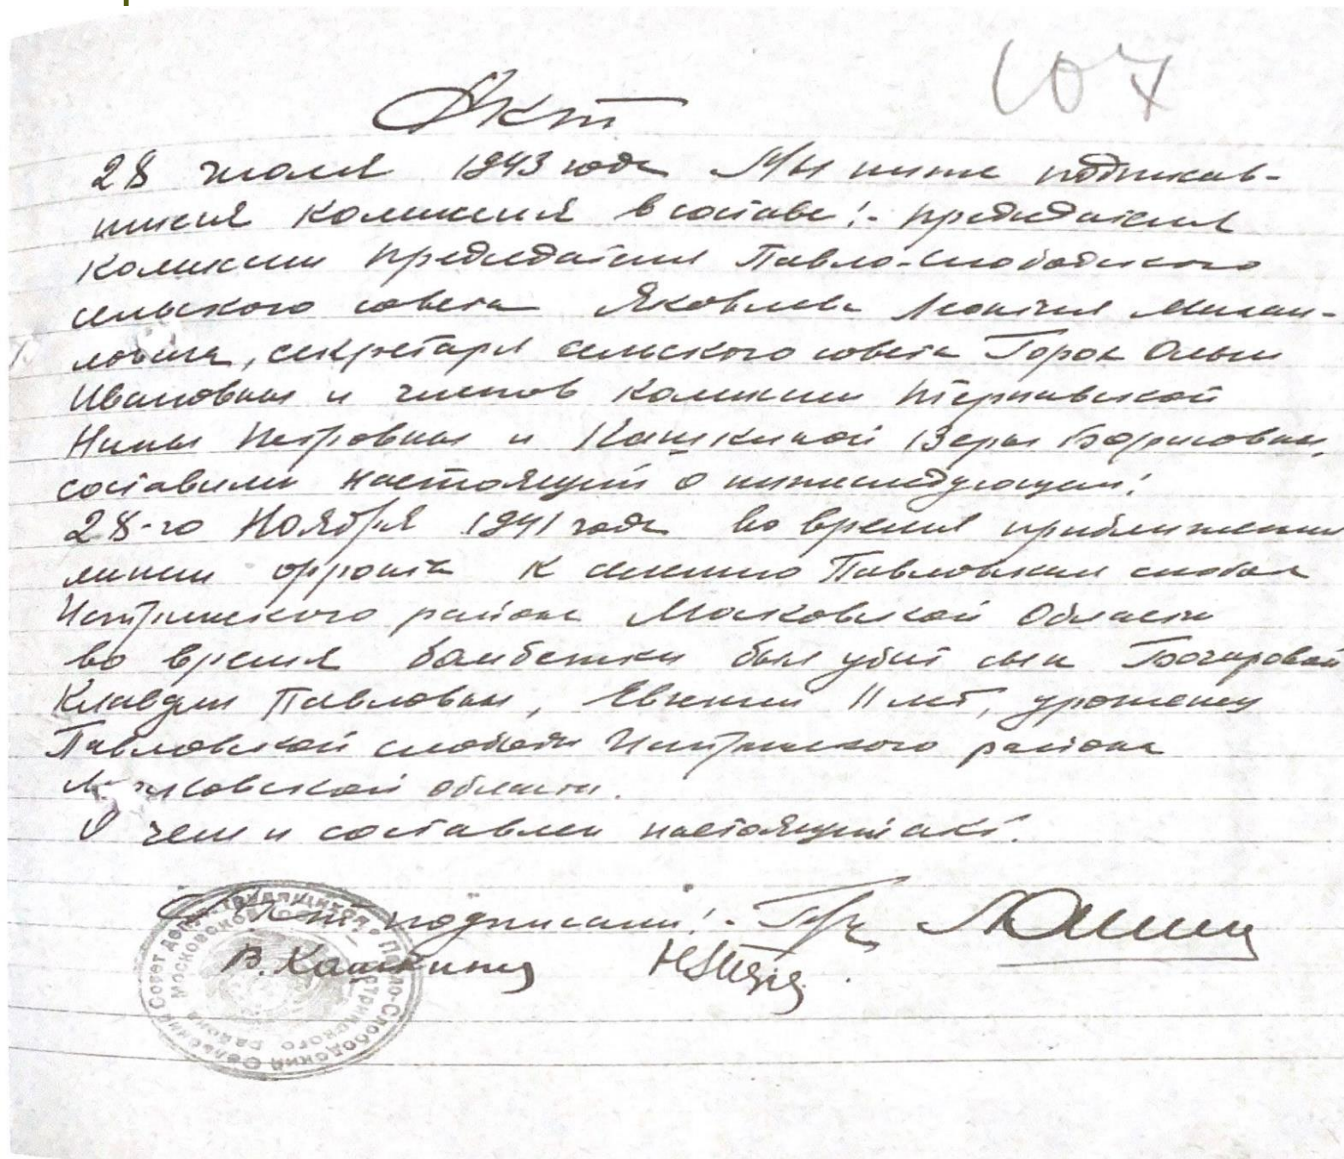 107
Акт
28 июля 1943 года Мы ниже подписав-
шиеся комиссия в составе:- председателя
комиссии председателя Павло-Слободского
сельского совета Яковлева Леонтия Михай-
ловича, секретаря сельского совета Горок Ольги
Ивановны и членов комиссии
Нины Петровны и Кашкиной Веры Борисовны,
составили настоящий о нижеследующем:
28-го Ноября 1941 года во время приближения
линии фронта к селению Павловская слобода
Истринского района Московской Области
во время бомбежки был убит сын Бочаровой
Клавдии Павловны, Евгений 11 лет, уроженец
Павловской слободы Истринского района
Московской области.
О чем и составлен настоящий акт.
подписали:-
В. Кашкина
Павло-Слободский Сельский Совет депут. трудящихся
Истринского района Московской